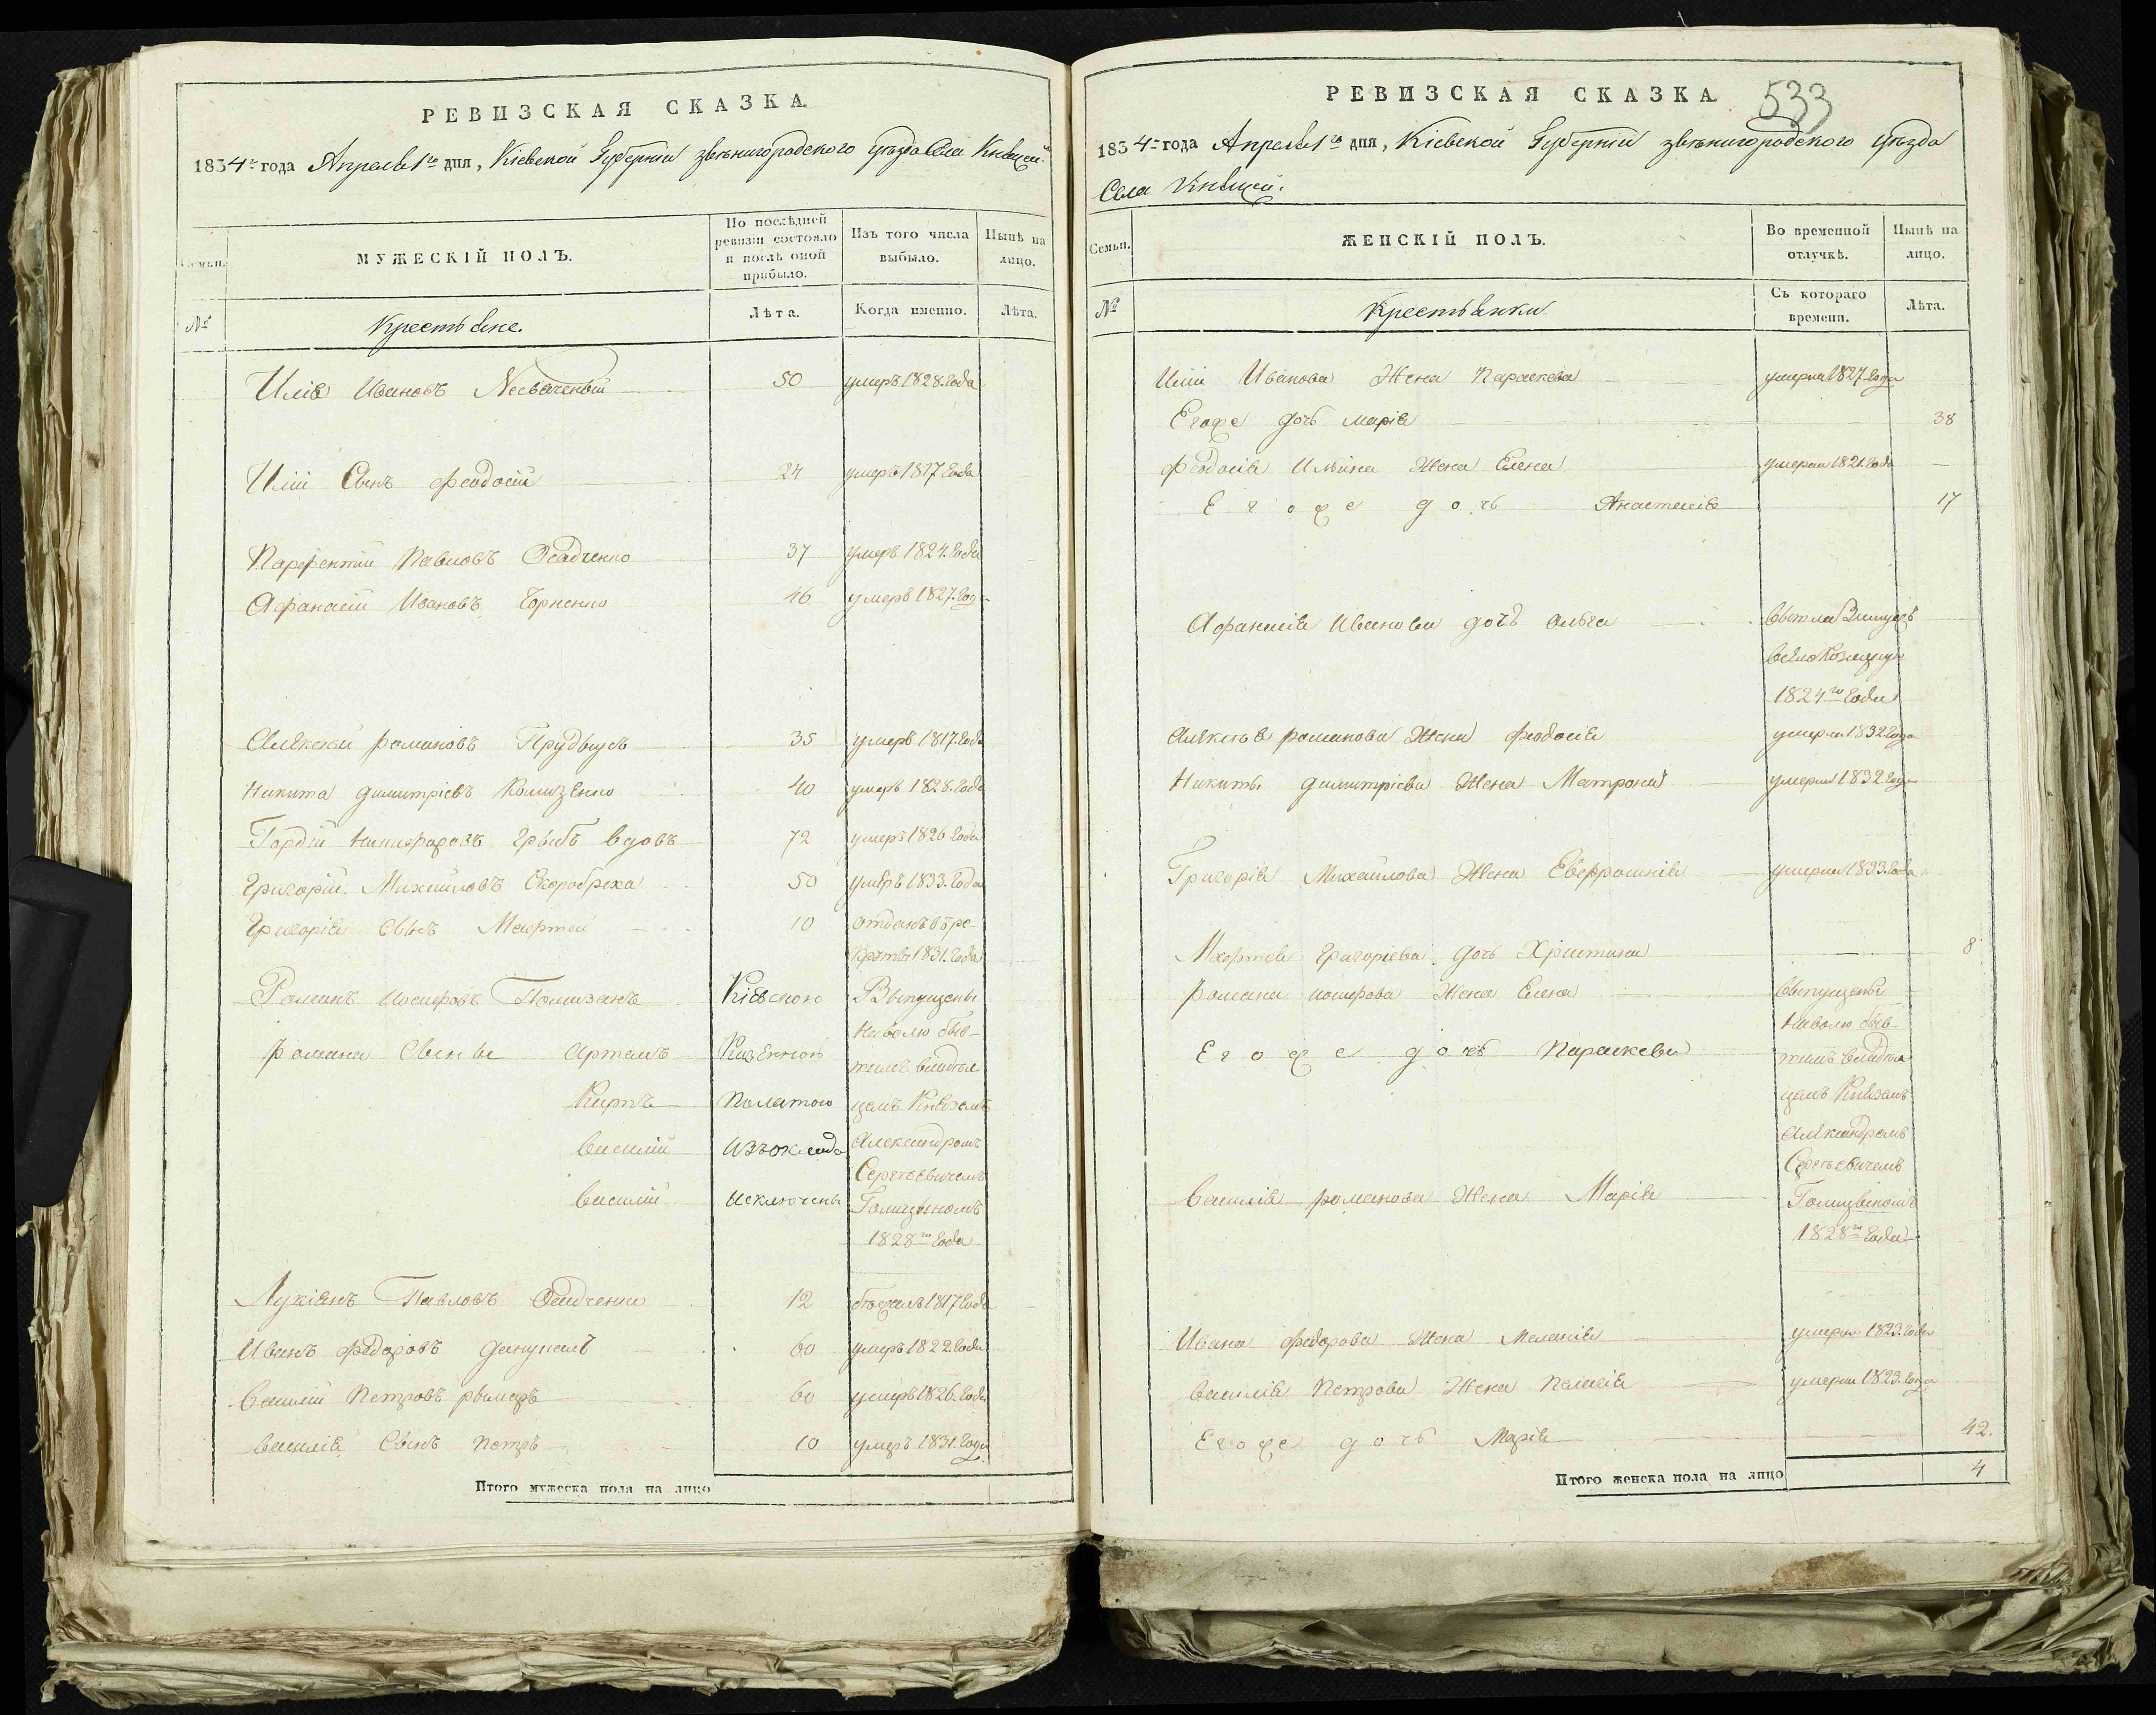 РЕВИЗСКАЯ СКАЗКА
1834го года Апреля 1го дня, Кіевской Губерніи звѣнигородского уѣзда Села
МУЖЕСКІЙ ПОЛЪ.
По послѣдней ревизіи состояло и послѣ оной прибыло.
Изъ того числа выбыло.
Нынѣ на лицо.
№
Крестьяне.
Лѣта.
Когда именно.
Лѣта.
Илія Ивановъ 50 умеръ 1828 года
Иліи Сынъ Феодосій 24 умеръ 1817 года
Парфентій Павловъ Осадченко 37 умеръ 1824 года
Афанасій Ивановъ Чорненко 46 умеръ 1827 года
Алексѣй романовъ Прудвусъ 35 умеръ 1817 года
Никита димитріевъ 40 умеръ 1828 года
Гордій Никифоровъ грыбъ вдовъ 72 умеръ 1826 года
Григорій Михайловъ Скоробреха 50 умеръ 1833 года
Григорія Сынъ 10 отданъ въ ре-
круты 1831 года
Романъ Иосифовъ Кіевскою Выпущены
на волю быв-
романа Сыны Артемъ Казенною
шимъ владѣл
Карпъ Полатою цемъ Княземъ
Василій Александромъ
Сергѣевичемъ
Василій Исключены Голицыномъ
1828го года
Лукіянъ Павловъ Осадченко 12 бѣжалъ 1817 года
Иванъ федоровъ 60 умеръ 1822 года
Василій Петровъ рымаръ 60 умеръ 1826 года
Василія Сынъ Петръ 10 умеръ 1831 года
Итого мужеска пола на лицо
РЕВИЗСКАЯ СКАЗКА
533
1834го года Апреля 1го дня, Кіевской Губерніи звѣнигородского уѣзда
Села
Семьи.
ЖЕНСКІЙ ПОЛЪ.
Во временной отлучкѣ.
Нынѣ на лицо.
№
Крестьянки
Съ котораго времени.
Лѣта.
Иліи Иванова Жена Параскева умерла 1827 года
Егоже дочь марія 38
феодосія Ильина Жена Елена умерла 1821 года
Егоже дочь Анастасія 17
Афанасія Иванова дочь Ольга вышла Замужъ
1824го года
Алексѣя романова Жена феодосія умерла 1832 года
Никиты димитріева Жена Матрона умерла 1832 года
Григорія Михайлова Жена Евфросинія умерла 1833 года
Григоріева дочь Христина 8
романа иосифова Жена Елена Выпущены
на волю быв-
Егоже дочь Параскева
шимъ владѣл
цемъ Княземъ
Александромъ
Сергѣевичемъ
Василія романова Жена Марія Голицыномъ
1828го года
Ивана федорова Жена Меланія умерла 1823 года
Василія Петрова Жена Пелагія умерла 1829 года
Егоже дочь Марія 42.
Итого женска пола на лицо 4